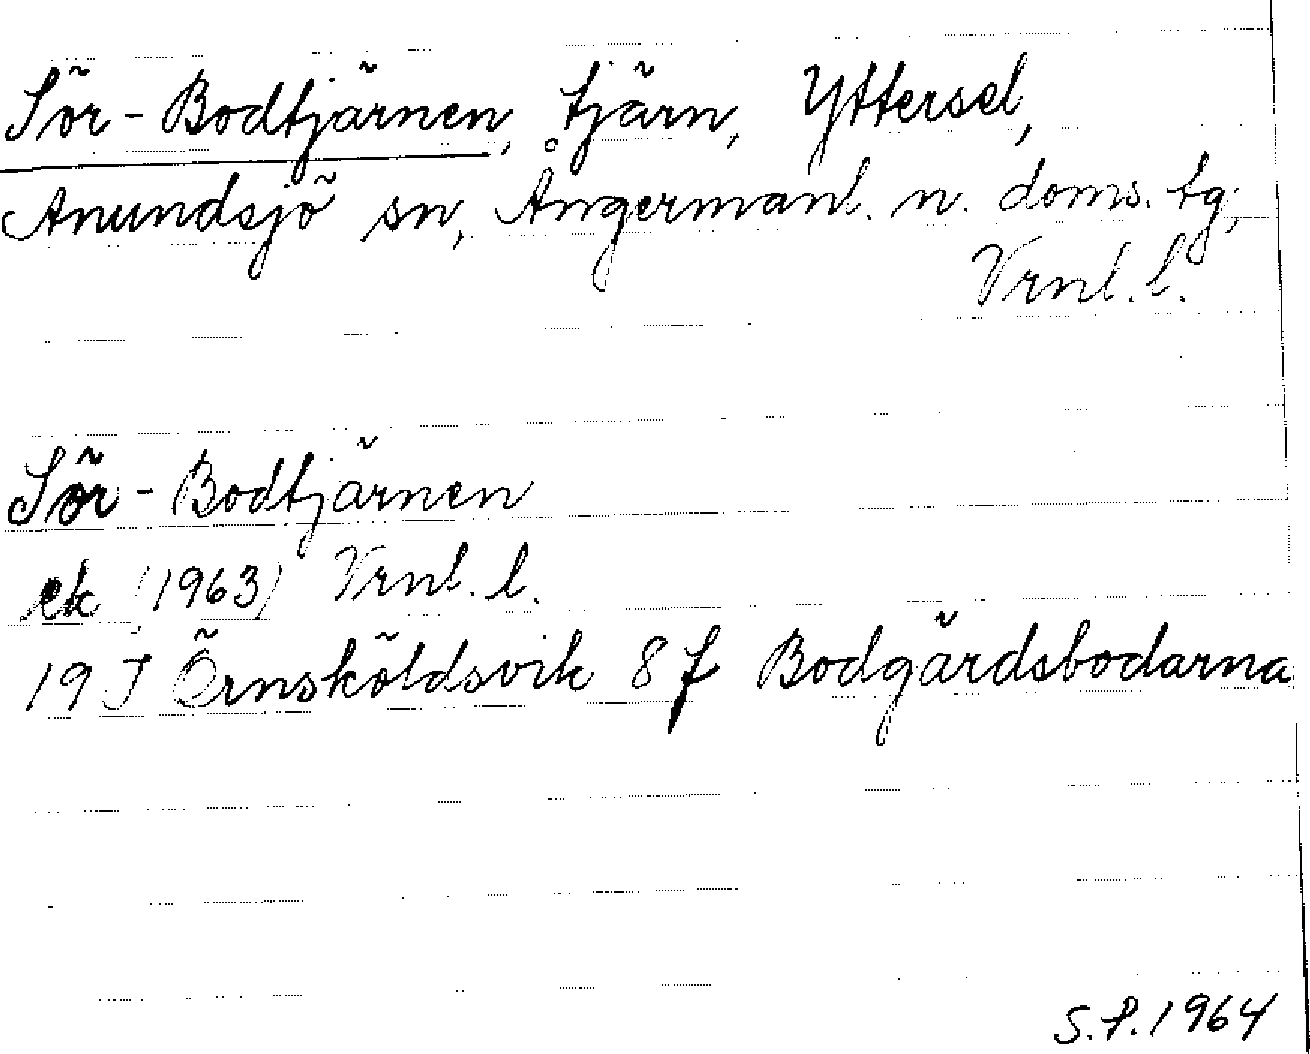 Sör-Bodtjärnen, tjärn, Yttersel,
Anundsjö sn, Ångermanl. n. doms. tg,
Vrnl. l.
Sör-Bodtjärnen
ek (1963) Vrnl. l.
19 J Örnsköldsvik 8 f Bodgärdsbodarna
S.P. 1964